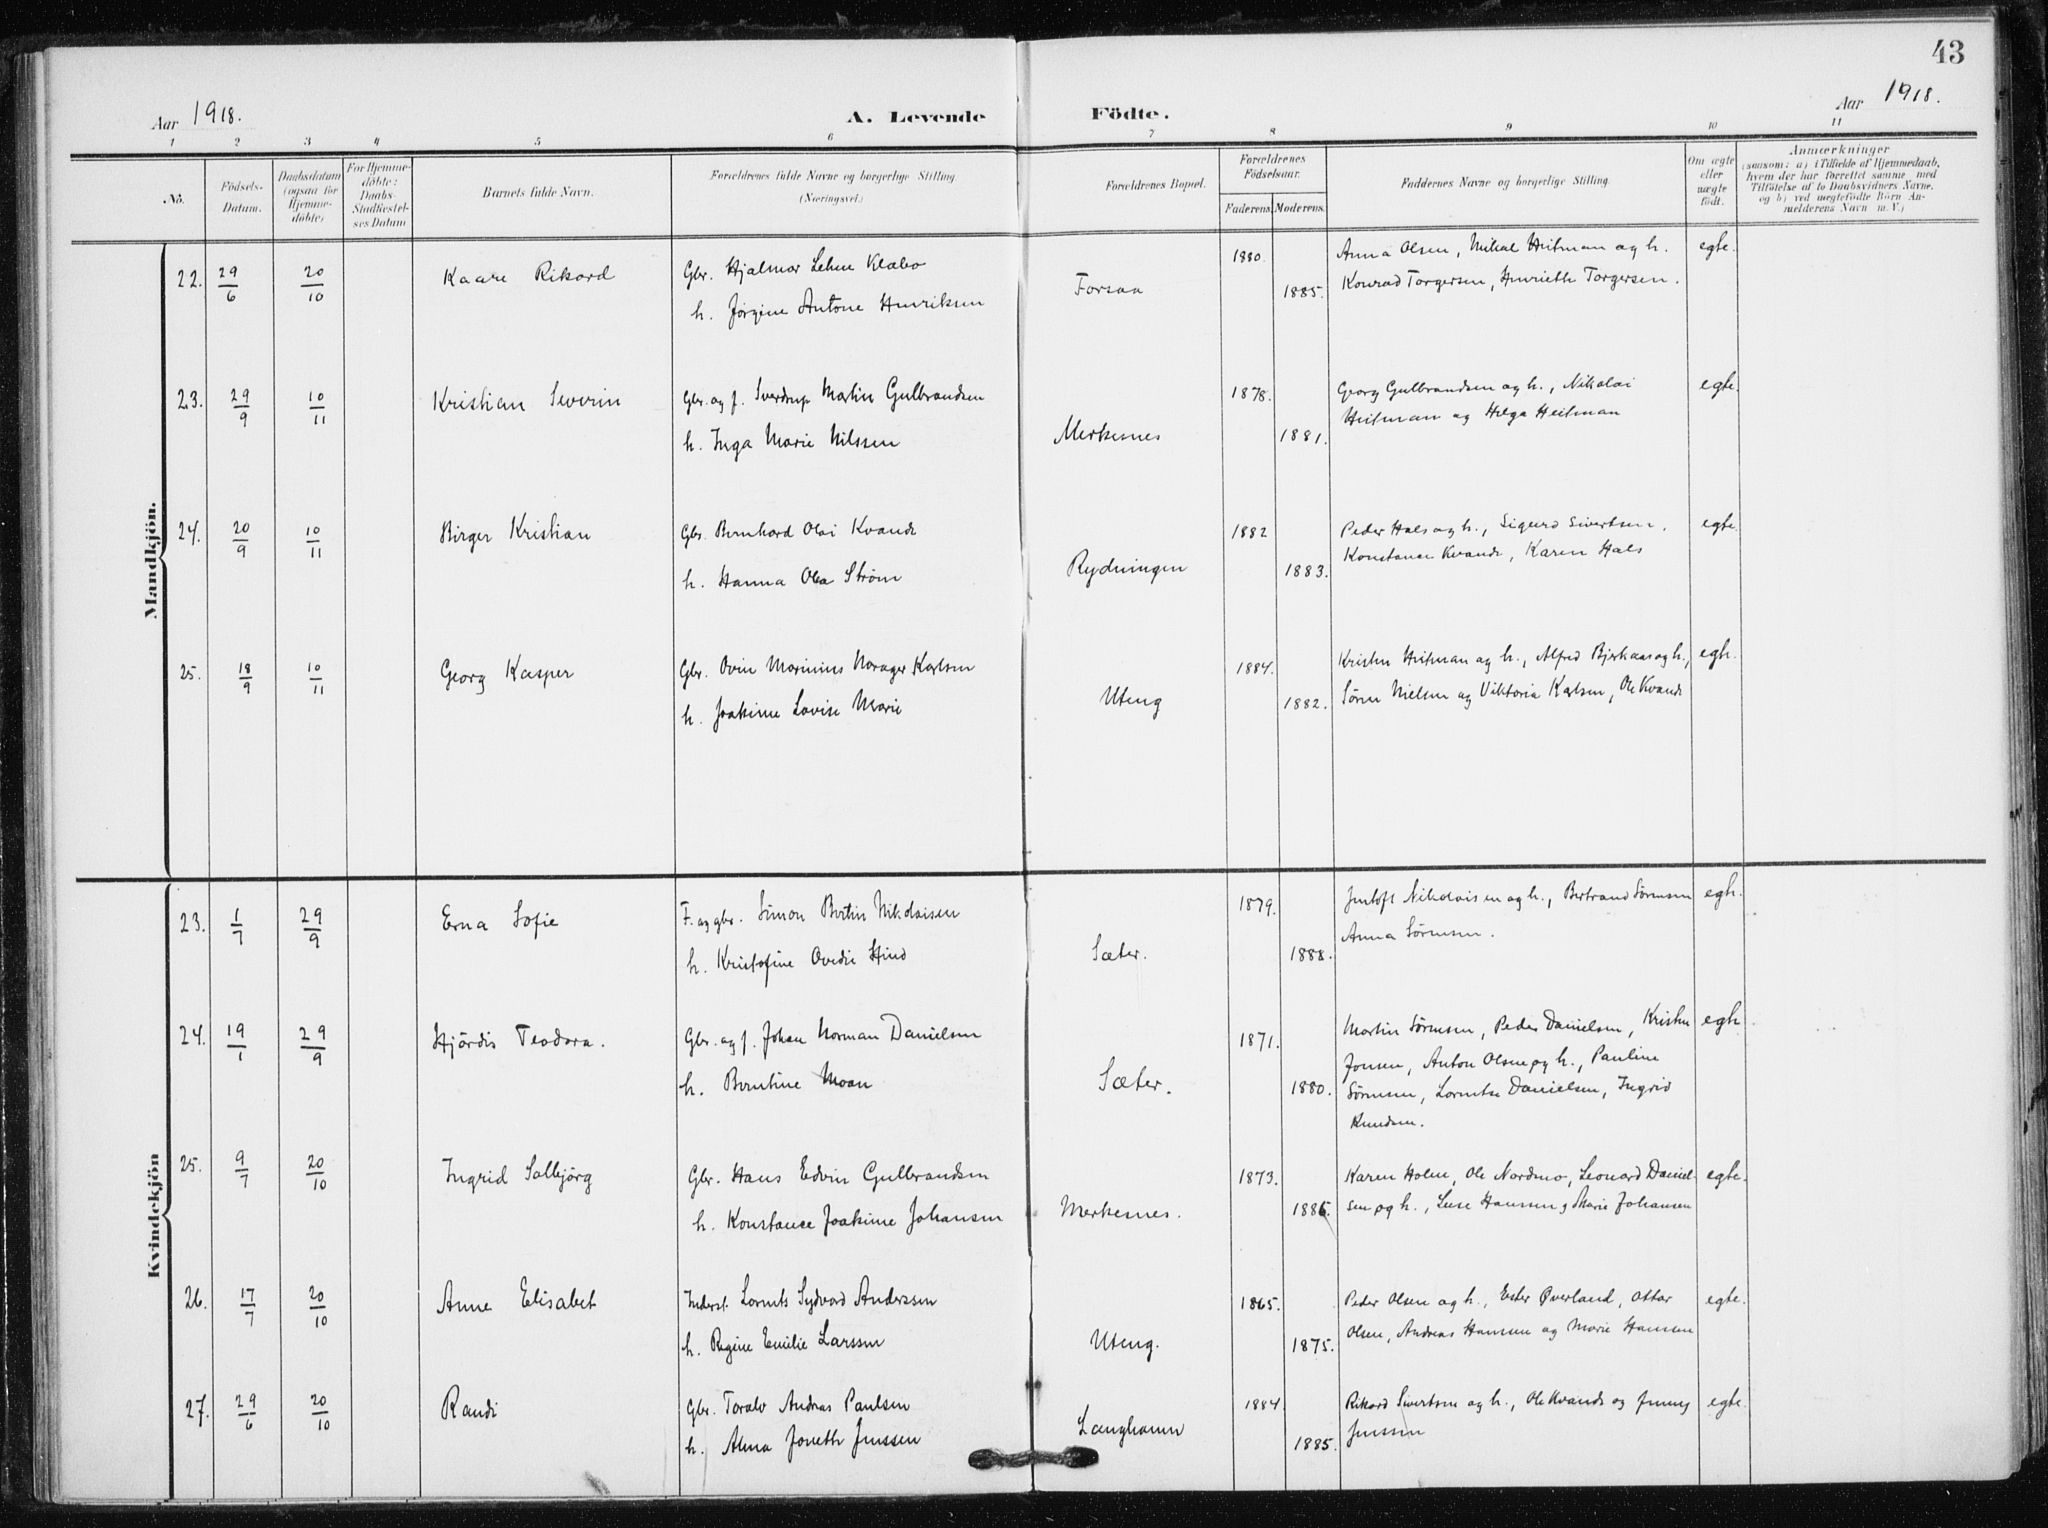 43
Aar 1918.
A. Levende
Födte.
Aar 1918.
1 2 3 4 5 6 7 8 9 10 11
No.
Födsels-Datum.
Daabsdatum (ogsaa for Hjemmedöbte)
For Hjemmedöbte: Daabs-Stadfæstelses Datum
Barnets fulde Navn.
Forældrenes fulde Navne og borgerlige Stilling (Næringsvei.)
Forældrenes Bopæl.
Forældrenes Födselsaar.
Faderens. Moderens.
Faddernes Navne og borgerlige Stilling
Om ægte eller uægte födt.
Anmærkninger
(saasom: a) i Tilfælde af Hjemmedaab,
hvem der har forrettet samme, med
Tilföielse af to Daabsvidners Navne,
og b) ved uægtefödte Börn An-
melderens Navn m. V.)
Mandkjön.
22. 29/6 20/10 Kaare Rikard Gbr. Hjalmar Lehn Klæbo Forsaa 1880. Anna Olsen, Mikal Heitman og h. egte.
h. Jørgine Antone Henriksen 1885. Konrad Torgersen, Henrieth Torgersen.
23. 29/9 10/11 Kristian Severin Gbr. og f. Sverdrup Martin Gulbrandsen Merkesnes 1878. Georg Gulbrandsen og h., Nikolai egte.
h. Inga Marie Nilssen 1881. Heitman og Helga Heitman
24. 20/9 10/11 Birger Kristian Gbr. Bernhard Olai Kvande Rydningen 1882 Peder Hals og h., Sigurd Sivertsen, egte.
h. Hanna Olea Strøm 1883. Konstanse Kvande, Karen Hals
25. 18/9 10/11 Georg Kasper Gbr. Ovin Marinius Norager Karlsen Uteng 1884. Kristen Heitman og h., Alfred Bjerkaas og h., egte.
h. Joakime Lovise Marie 1882. Søren Nielsen og Viktoria Karlsen, Ole Kvande
Kvindekjön
23. 1/7 29/9 Erna Sofie F. og gbr. Simon Bertin Nikolaisen Sæter. 1879. Jentoft Nikolaisen og h., Bertrand Sørensen egte.
h. Kristofine Ovedie Hind 1888. Anna Sørensen.
24. 19/1 29/9 Hjördis Teodora. Gbr. og f. Johan Norman Danielsen Sæter. 1871. Martin Sørensen, Peder Danielsen, Kristen egte.
h. Berntine Moan 1880. Jonsen, Anton Olsen og h., Pauline
Sørensen, Lorentse Danielsen, Ingrid
Knudsen.
25. 9/7 20/10 Ingrid Solbjörg Gbr. Hans Edvin Gulbrandsen Merkesnes. 1873. Karen Holm, Ole Nordmo, Leonard Daniel- egte.
h. Konstance Joakime Johansen 1886. sen og h., Hanssen, Marie Johansen
26. 17/7 20/10 Anne Elisabet Inderst. Lorents Sydvard Anderssen Uteng. 1865. Peder Olsen og h., Ester Øverland, Ottar egte.
h. Regine Emilie Larssen 1875. Olsen, Andreas Hansen og Marie Hansen
27. 29/6 20/10 Randi Gbr. Toralv Andreas Paulsen Langhamn 1884 Rikard Sivertsen og h., Ole Kvande og Jenny egte.
h. Alma Joneth Jenssen 1885. Jenssen